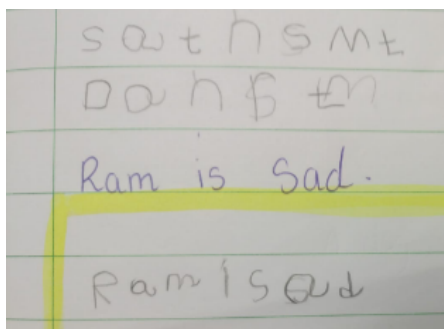 s a t h s m t
D a n f t m
Ram is Sad.
Ram is ad